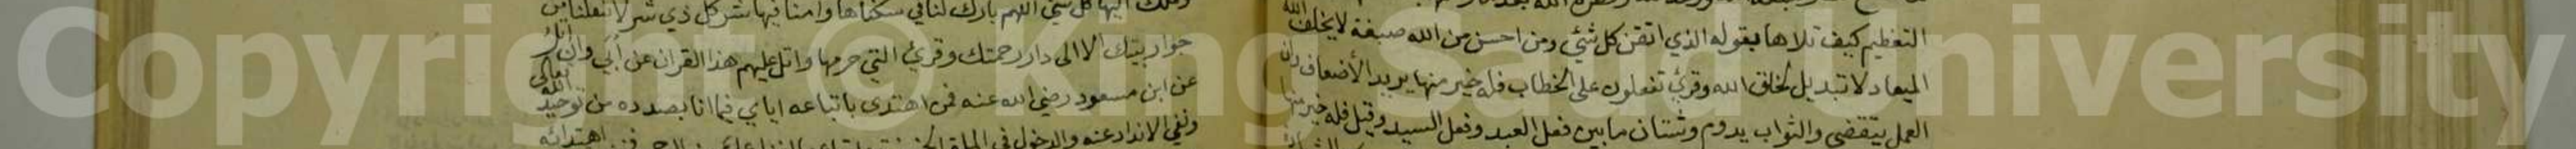 التعظيم كيف تلاها بقوله الذي اتقن كل شئ ومن احسن من الله صبغة لا يخلف الله
الميعاد لا تبديل لخلق الله وقرئ تفعلون على الخطاب فله خير منها يريد الأضعاف وان
العمل يتقضى والثواب يدوم وشتان ما بين فعل العبد وفعل السيد وقيل فله خير منها
اليها كل شئ اللهم بارك لنا في سكناها وامنا فيها شر كل ذي شر لا تنقلنا من
جوار بيتك الا الى دار رحمتك وقرئ التي حرمها واتل عليهم هذا القران عن ابي وان اتل
عن ابن مسعود رضي الله عنه فمن اهتدى باتباعه اياي فيما انا بصدده من توحيد الله تعالى
ونفي الانداد عنه والدخول في الملة
Copyright © King Saud University